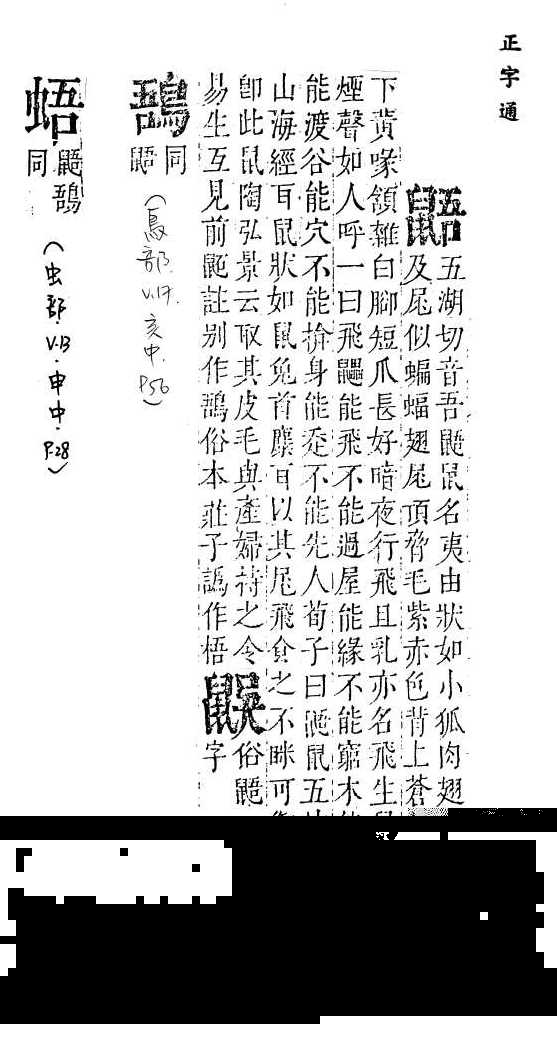 正字通
鼯
五湖切音吾鼯鼠名夷由狀如小狐肉翅
及尾似蝙蝠翅尾項脅毛紫赤色背上蒼
下黃喙頷雜白腳短爪長好暗夜行飛且乳亦名飛生
煙聲如人呼一曰飛鸓能飛不能過屋能緣不能窮木
能渡谷能穴不能揜身能走不能先人荀子曰鼫鼠五
山海經耳鼠狀如鼠兔首麋耳以其尾飛食之不眯可
卽此鼠陶弘景云取其皮毛與產婦持之令
易生互見前鼫註別作䳱俗本莊子譌作梧
俗鼯
字
䳱
同
鼯
(鳥部.V.17.亥中.P.56)
蜈
鼯䳱
同
(虫部.V.13.申中.P.28)